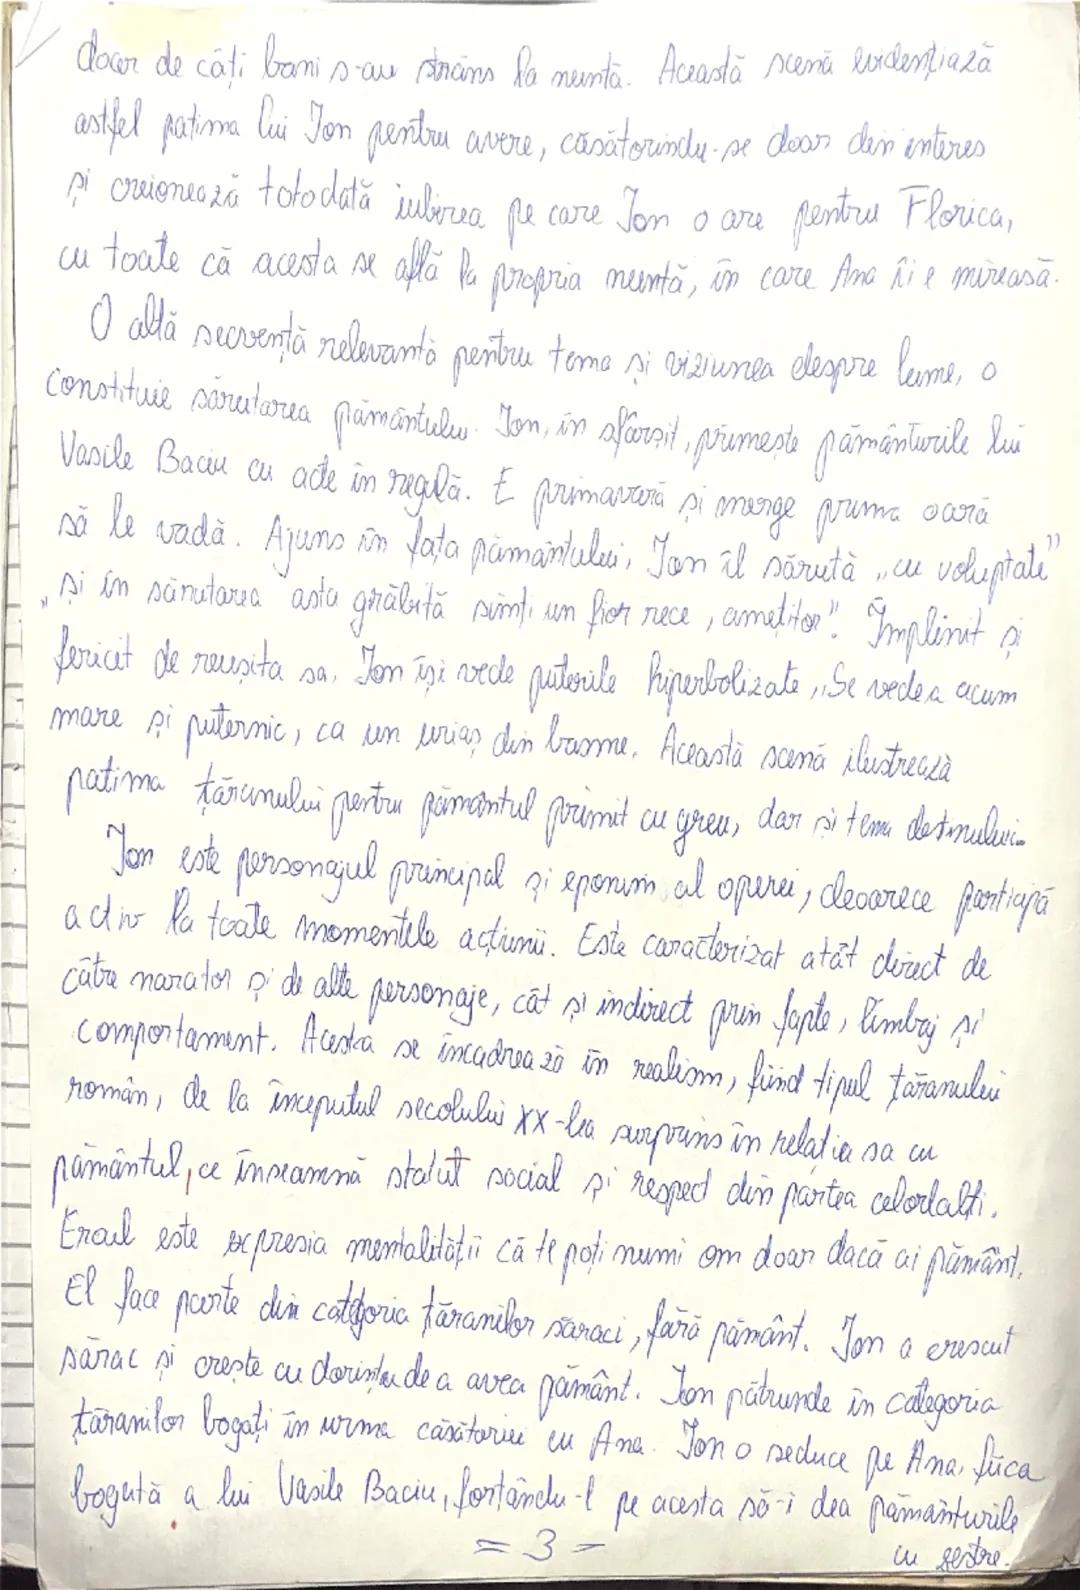 doar de câți bani s-au strâns la nuntă. Această scenă evidențiază
astfel patima lui Ion pentru avere, căsătorindu-se doar din interes
și creionează totodată iubirea pe care Ion o are pentru Florica,
cu toate că acesta se află la propria nuntă, în care Ana îi e mireasă.
O altă secvență relevantă pentru tema și viziunea despre lume, o
constituie sărutarea pământului. Ion, în sfârșit, primește pământurile lui
Vasile Baciu cu acte în regulă. E primavară și merge prima oară
să le vadă. Ajuns în fața pământului, Ion îl sărută „cu voluptate"
„Și în sărutarea asta grăbită simți un fior rece, amețitor". Împlinit și
fericit de reușita sa, Ion își vede puterile hiperbolizate „Se vedea acum
mare și puternic, ca un uriaș din basme. Această scenă ilustrează
patima țăranului pentru pământul primit cu greu, dar și tema destinului.
Ion este personajul principal și eponim al operei, deoarece participă
activ la toate momentele acțiunii. Este caracterizat atât direct de
către narator și de alte personaje, cât și indirect prin fapte, limbaj și
comportament. Acesta se încadrează în realism, fiind tipul țăranului
român, de la începutul secolului XX-lea surprins în relația sa cu
pământul, ce înseamnă statut social și respect din partea celorlalți.
Eroul este expresia mentalității că te poți numi om doar dacă ai pământ.
El face parte din categoria țăranilor săraci, fără pământ. Ion a crescut
sărac și crește cu dorința de a avea pământ. Ion pătrunde în categoria
țăranilor bogați în urma căsătoriei cu Ana. Ion o seduce pe Ana, fiica
bogată a lui Vasile Baciu, forțându-l pe acesta să-i dea pământurile
cu zestre.
= 3 =